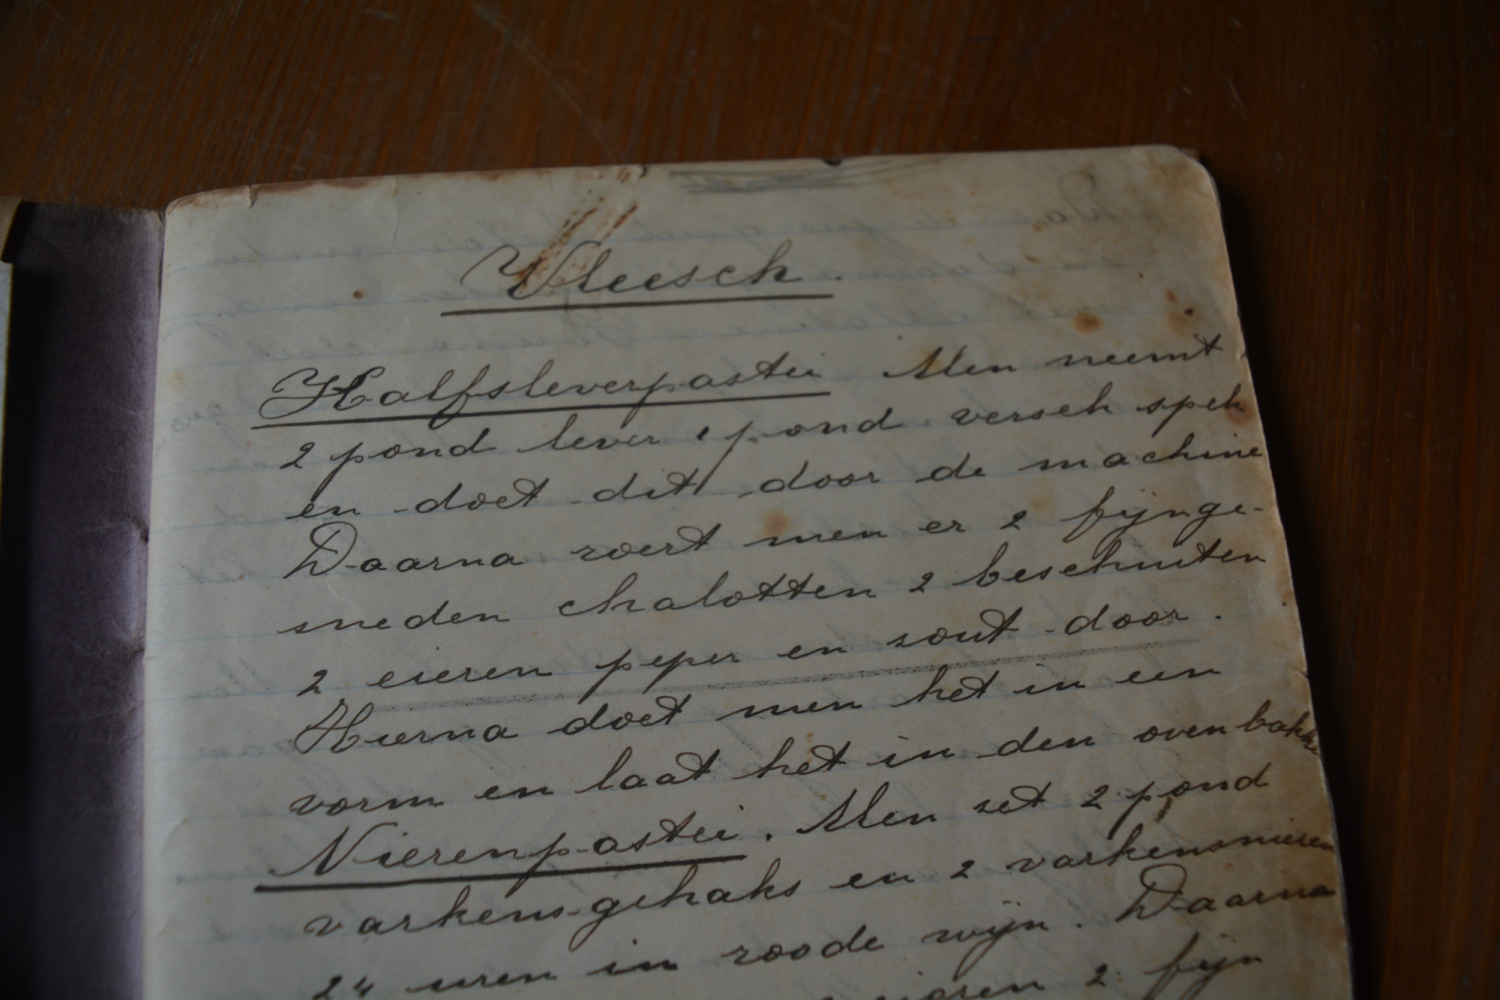 Vleesch.
Halfsleverpastei Men neemt
2 pond lever 1 pond versch spek
en doet dit door de machine
Daarna roert men er 2 fijnge-
sneden chalotten 2 beschuiten
2 eieren peper en zout door.
Hierna doet men het in een
vorm en laat het in den oven bakken
Nierenpastei. Men zet 2 pond
varkens-gehaks en 2 varkensnieren
24 uren in roode wijn. Daarna
2 fijn